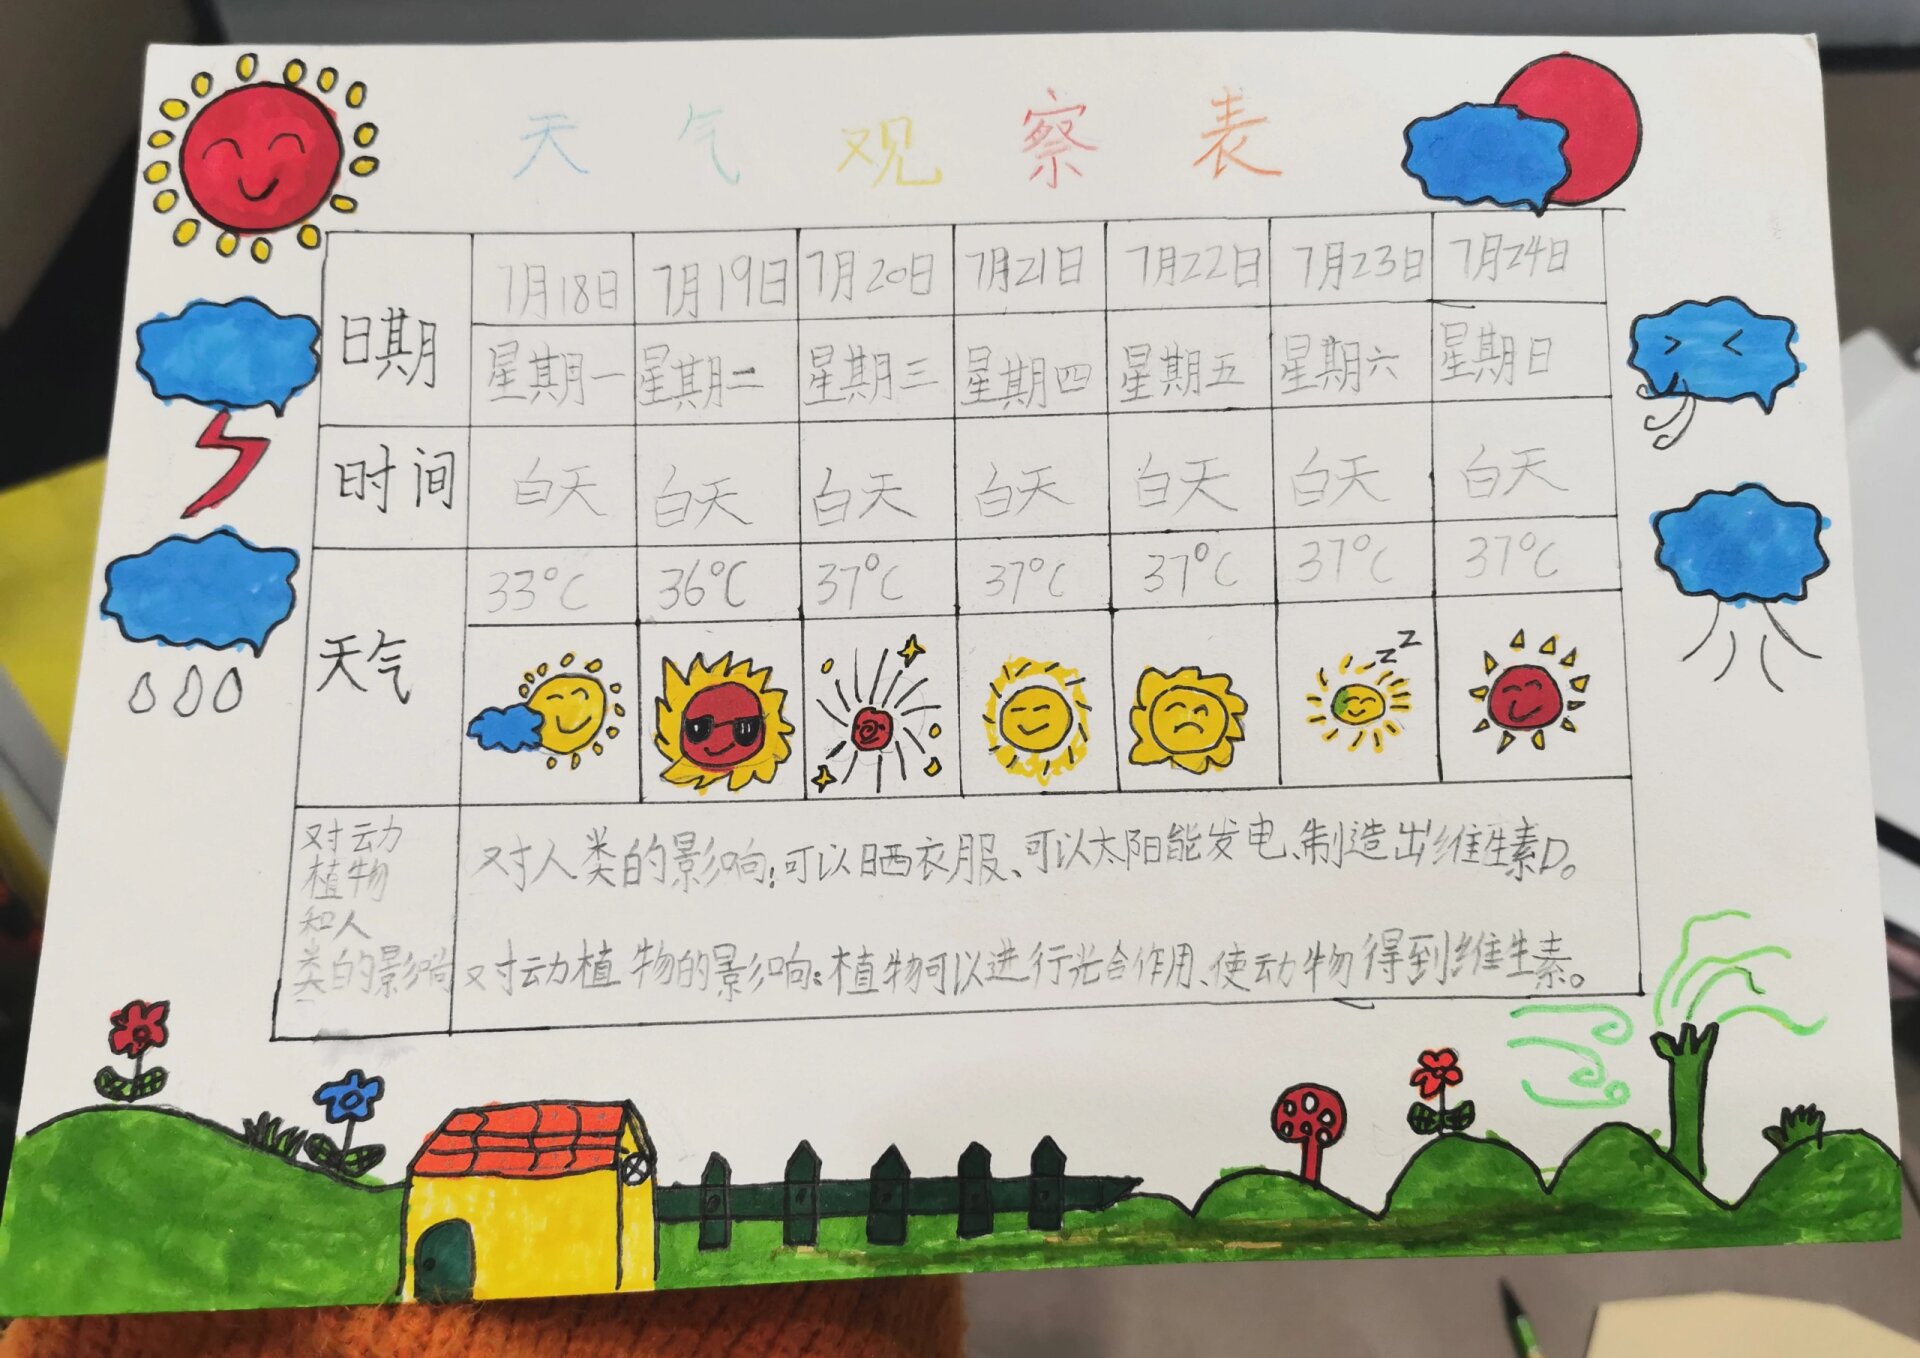 天气观察表
日期 7月18日 7月19日 7月20日 7月21日 7月22日 7月23日 7月24日
星期一 星期二 星期三 星期四 星期五 星期六 星期日
时间 白天 白天 白天 白天 白天 白天 白天
天气 33°C 36°C 37°C 37°C 37°C 37°C 37°C
zz
对动
植物
和人
类的影响
对人类的影响:可以晒衣服、可以太阳能发电、制造出维生素D。
对动植物的影响:植物可以进行光合作用、使动物得到维生素。